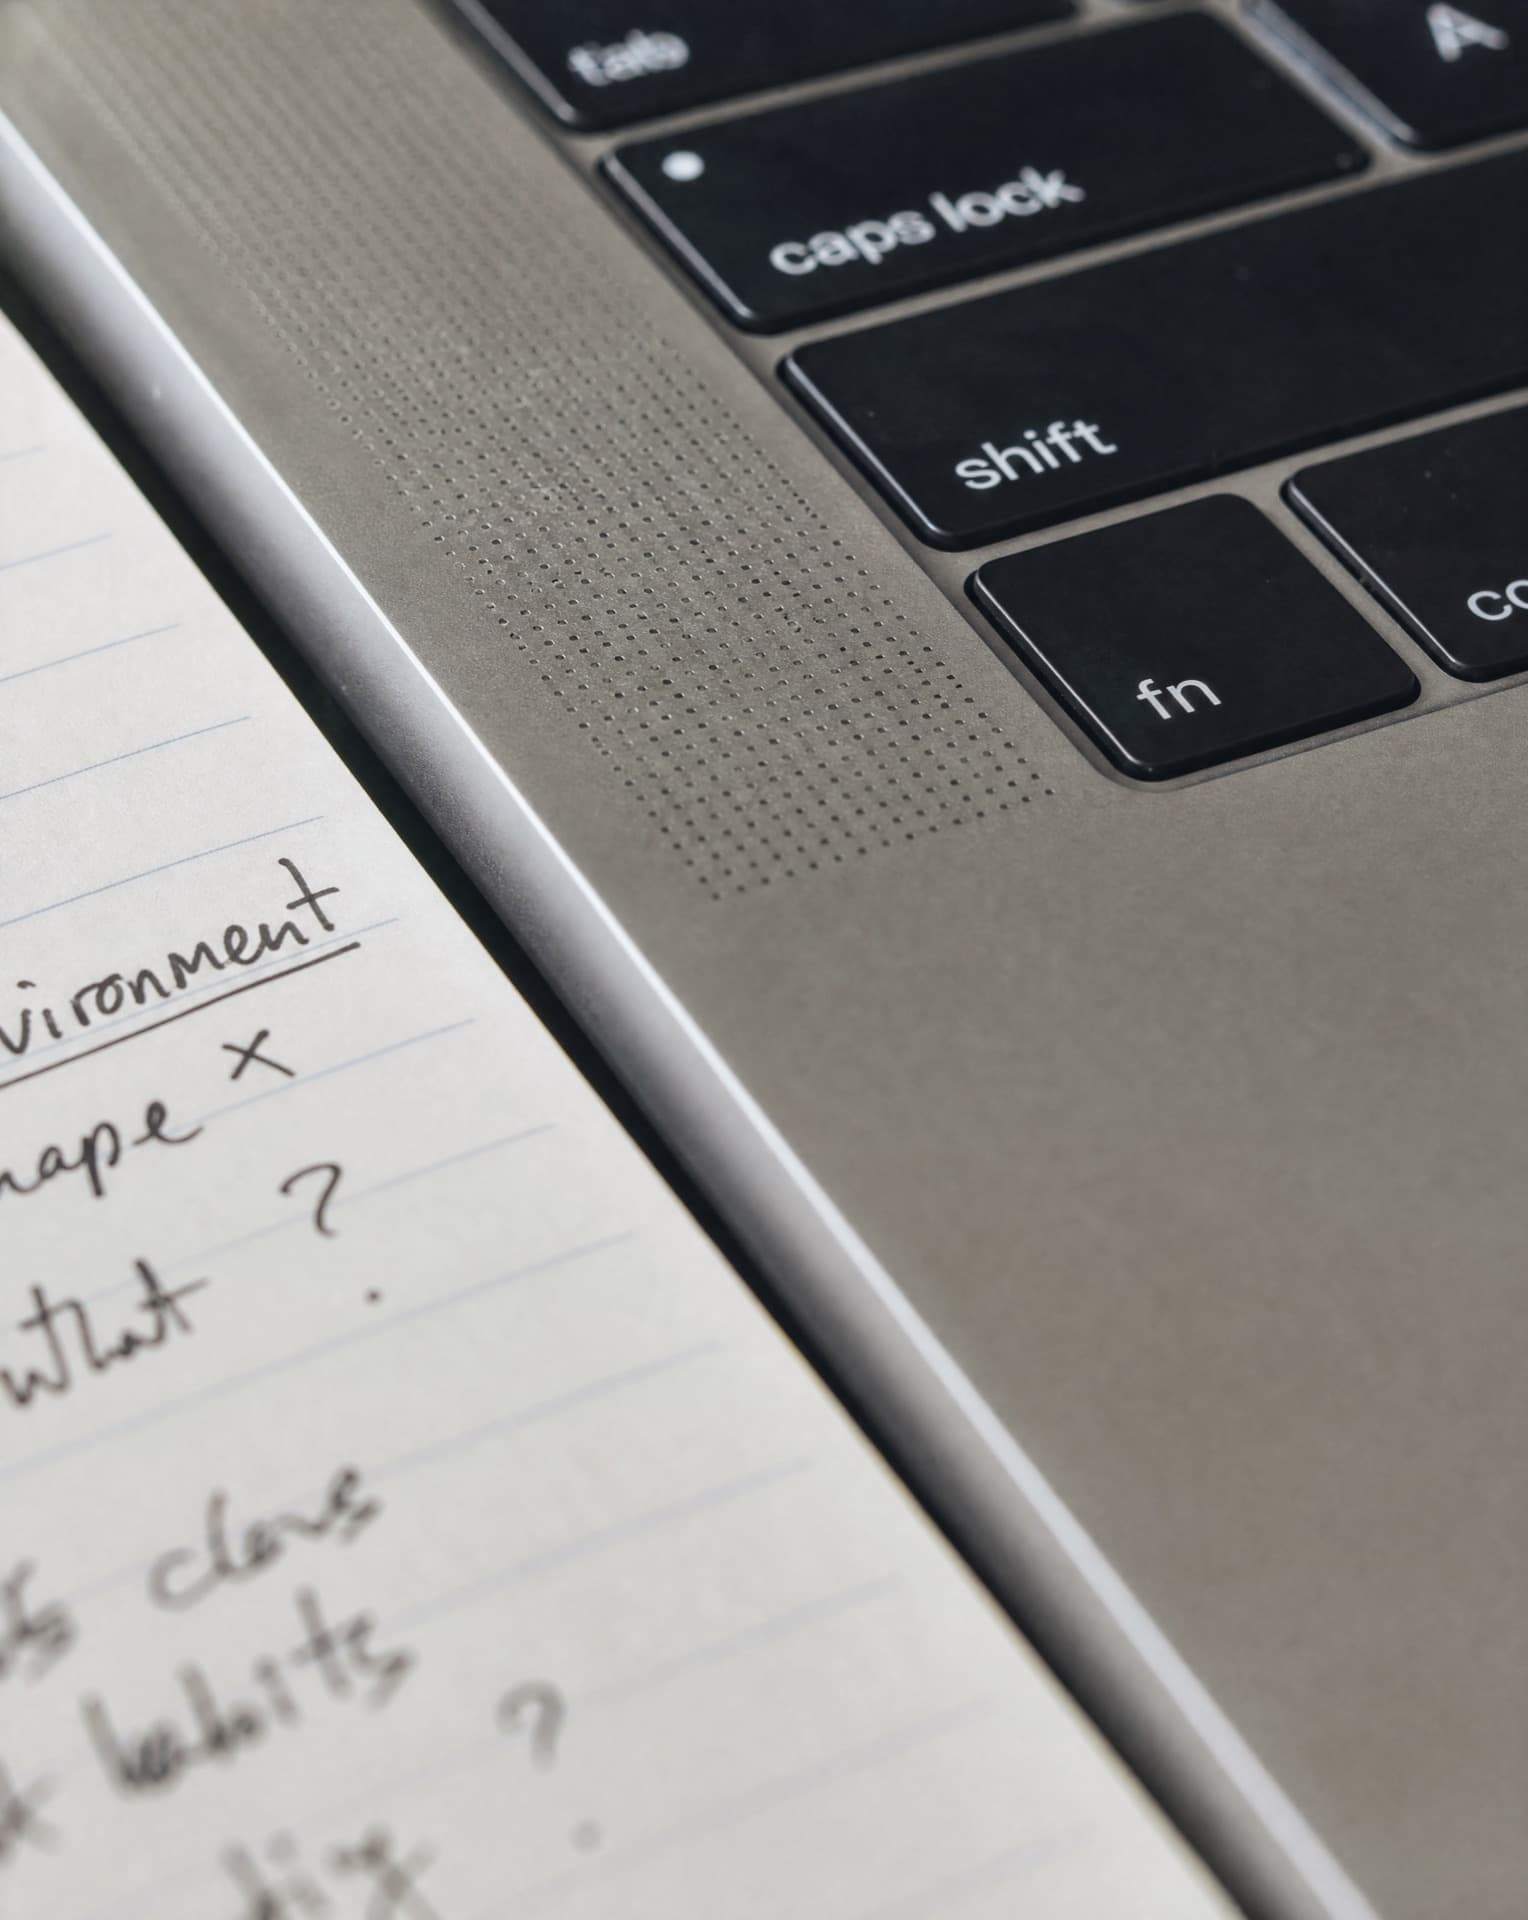 tab
A
caps lock
shift
fn
co
vironment
hape x
what ?
habits
?